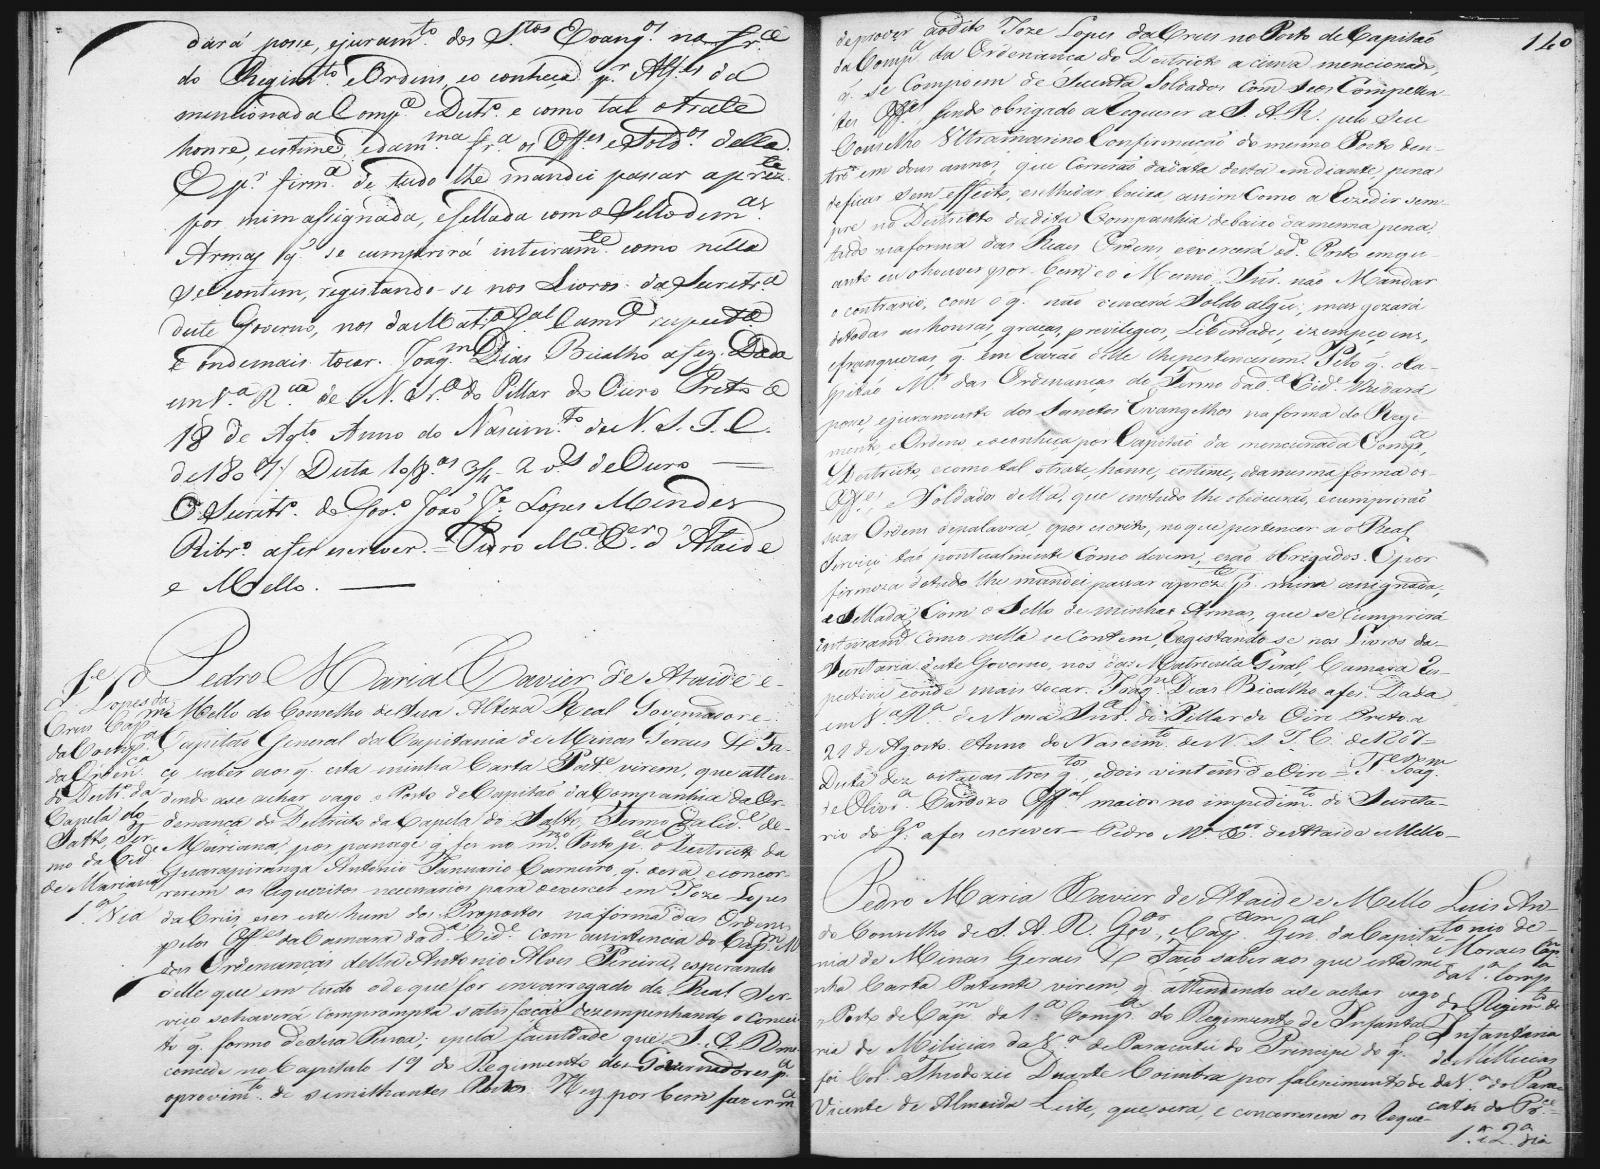 dará posse, ejuramto. dos Stos Evangos. na fra.
do Regimto. e Ordens, eo conheça pr. Alfes da
mencionada Compa. e Distro. e como tal o trate
honre, eestime, edamma fra. os Offes. e Soldos. della.
E pa. firma. de tudo lhe mandei passar aprezte
por mim assignada, e Sellada com o Sello dem.as
Armas q̃ se cumprirá inteiramte. como nella
se contem, registando-se nos Livros da Secretra.
deste Governo, nos da Matra. Gal. Camra. respecta.
e onde mais tocar. Joaqm. Dias Bicalho afez. Dada
em Va. Rica de N. Sra. do Pillar do Ouro Preto a
18 de Agto. Anno do Nascimto. de N. S. J. C.
de 1807 // Desta 10/8as 3/4 2 vs. de Ouro —
O Secretro. do Govo. João Je. Lopes Mendes
Ribro. afes escrever. = Pedro Ma. Xer. d'Ataide
e Mello. —
Je. Lopes da
Crus Capm.
da Compa.
da Ordenca.
do Destro. da
Capela do
Salto, Ter-
mo da Cide.
de Mariana
1a. Via
Pedro Maria Xavier de Ataide e-
Mello do Conselho de Sua Alteza Real Governador e-
Capitão General da Capitania de Minas Geraes &. Fa-
ço saber aos q̃ esta minha Carta Pate. virem, que atten-
dendo ase achar vago o Posto de Capitão da Companhia da Or-
denança do Destricto da Capela do Salto, Termo da Cide. de-
Mariana, por passage q̃ fes no mmo. Posto pa. o Destricto da
Guarapiranga Antonio Januario Carneiro, q̃ oera, econcor-
rerem os requezitos necessarios para oexercer em Joze Lopes
da Crus, eser este hum dos Propostos na forma das Ordens
pelos Offes. da Camara dada. Cide. com assistencia do Capm. M
das Ordenanças della Antonio Alves Pereira, esperando
delle que em tudo ode que for encarregado do Real Ser-
viço sehaverá comprompta satisfação dezempenhando o concei-
to q̃ formo desua Pessoa; epela faculdade que S. A. R. me
concede no Capitulo 19 do Regimento dos Governadores pa.
oprovimto. de semilhantes Postos Hey por bem fazer ma.
140
deprover aodito Joze Lopes da Crus no Posto de Capitão
da Compa. da Ordenanca do Destricto acima mencionado,
q̃ se Compoem de Secenta Soldados Com seos Competen-
tes Offes. sendo obrigado a Requerer a S. A. R. pelo Seu
Conselho Ultramarino Confirmacaõ do mesmo Posto den-
tro em dous annos, que Correráõ dadata desta em diante, pena
deficar sem effeito, eselhedar baixa, assim Como a Rezedir sem-
pre no Destricto dadita Companhia debaixo da mesma pena,
tudo na forma das Reaes Ordens, eexercerá odo. Posto emqu-
anto eu ohouver por bem, eo Mesmo Snr. não Mandar
o contrario, com o q̃ não vencerá Soldo algũ; mas gozará
detodas ashonras, graças, previlegios, Liberdades, izempcoens,
efranquezas, q̃ em razão delle lhepertencerem. Pelo q̃ oCa-
pitão Mr. das Ordenanças do Termo dada. Cide. lhedará
posse, ejuramento dos Sanctos Evangelhos naforma do Regi-
mento, e Ordens, eoconheça por Capitão da mencionada Compa.
Destricto, ecomo tal otrate, honre, eestime, edamesma forma os
Offes. e Soldados della, que emtudo lhe obedecerão, ecumprirão
suas Ordens depalavra, epor escrito, no que pertencer ao Real
Serviço tão pontualmente Como devem, esão obrigados. Epor
firmeza detudo lhe mandei passar aprezte. p. mim assignada,
e Sellada Com o Sello de minhas Armas, que se Cumprirá
inteiramte. Como nella se Contem, Registando-se nos Livros da-
Secretaria deste Governo, nos das Matricula Geral, Camara Res-
pectiva eonde mais tocar. Joaqm. Dias Bicalho afes. Dada
em Va. Ra. de Nossa Snra. do Pillar do Oiro Preto a
21 de Agosto. Anno do Nascimto. de N. S. J. C. de 1807-
Desta dez oitavas tres qtos., edois vintens de Oiro = Je. Joaqm.
de Olivra. Cardozo Offal. maior no impedimto. do Secreta-
rio do Go. afes escrever — Pedro Ma. Xer. de Ataide e Mello-
Pedro Maria Xavier de Ataide e Mello
do Conselho de S. A. R. Govor., e Capam. Genal. da Capita-
nia de Minas Geraes &. Faço saber aos que esta mi-
nha Carta Patente virem, q̃ attendendo ase achar vago
o Posto de Capm. da 1a. Compa. do Regimento de Infanta-
ria de Milicias da Va. de Paracatú do Principe do q̃
foi Col. Theodozio Duarte Coimbra por falecimento de
Vicente de Almeida Leite, que oera, e concorrerem os reque-
Luis An-
tonio de-
Moraes Capm.
da 1a. Compa.
do Regimto. de
Infantaria
de Milicias
da Va. do Para-
catú do Pre.
1a. e 2a. via